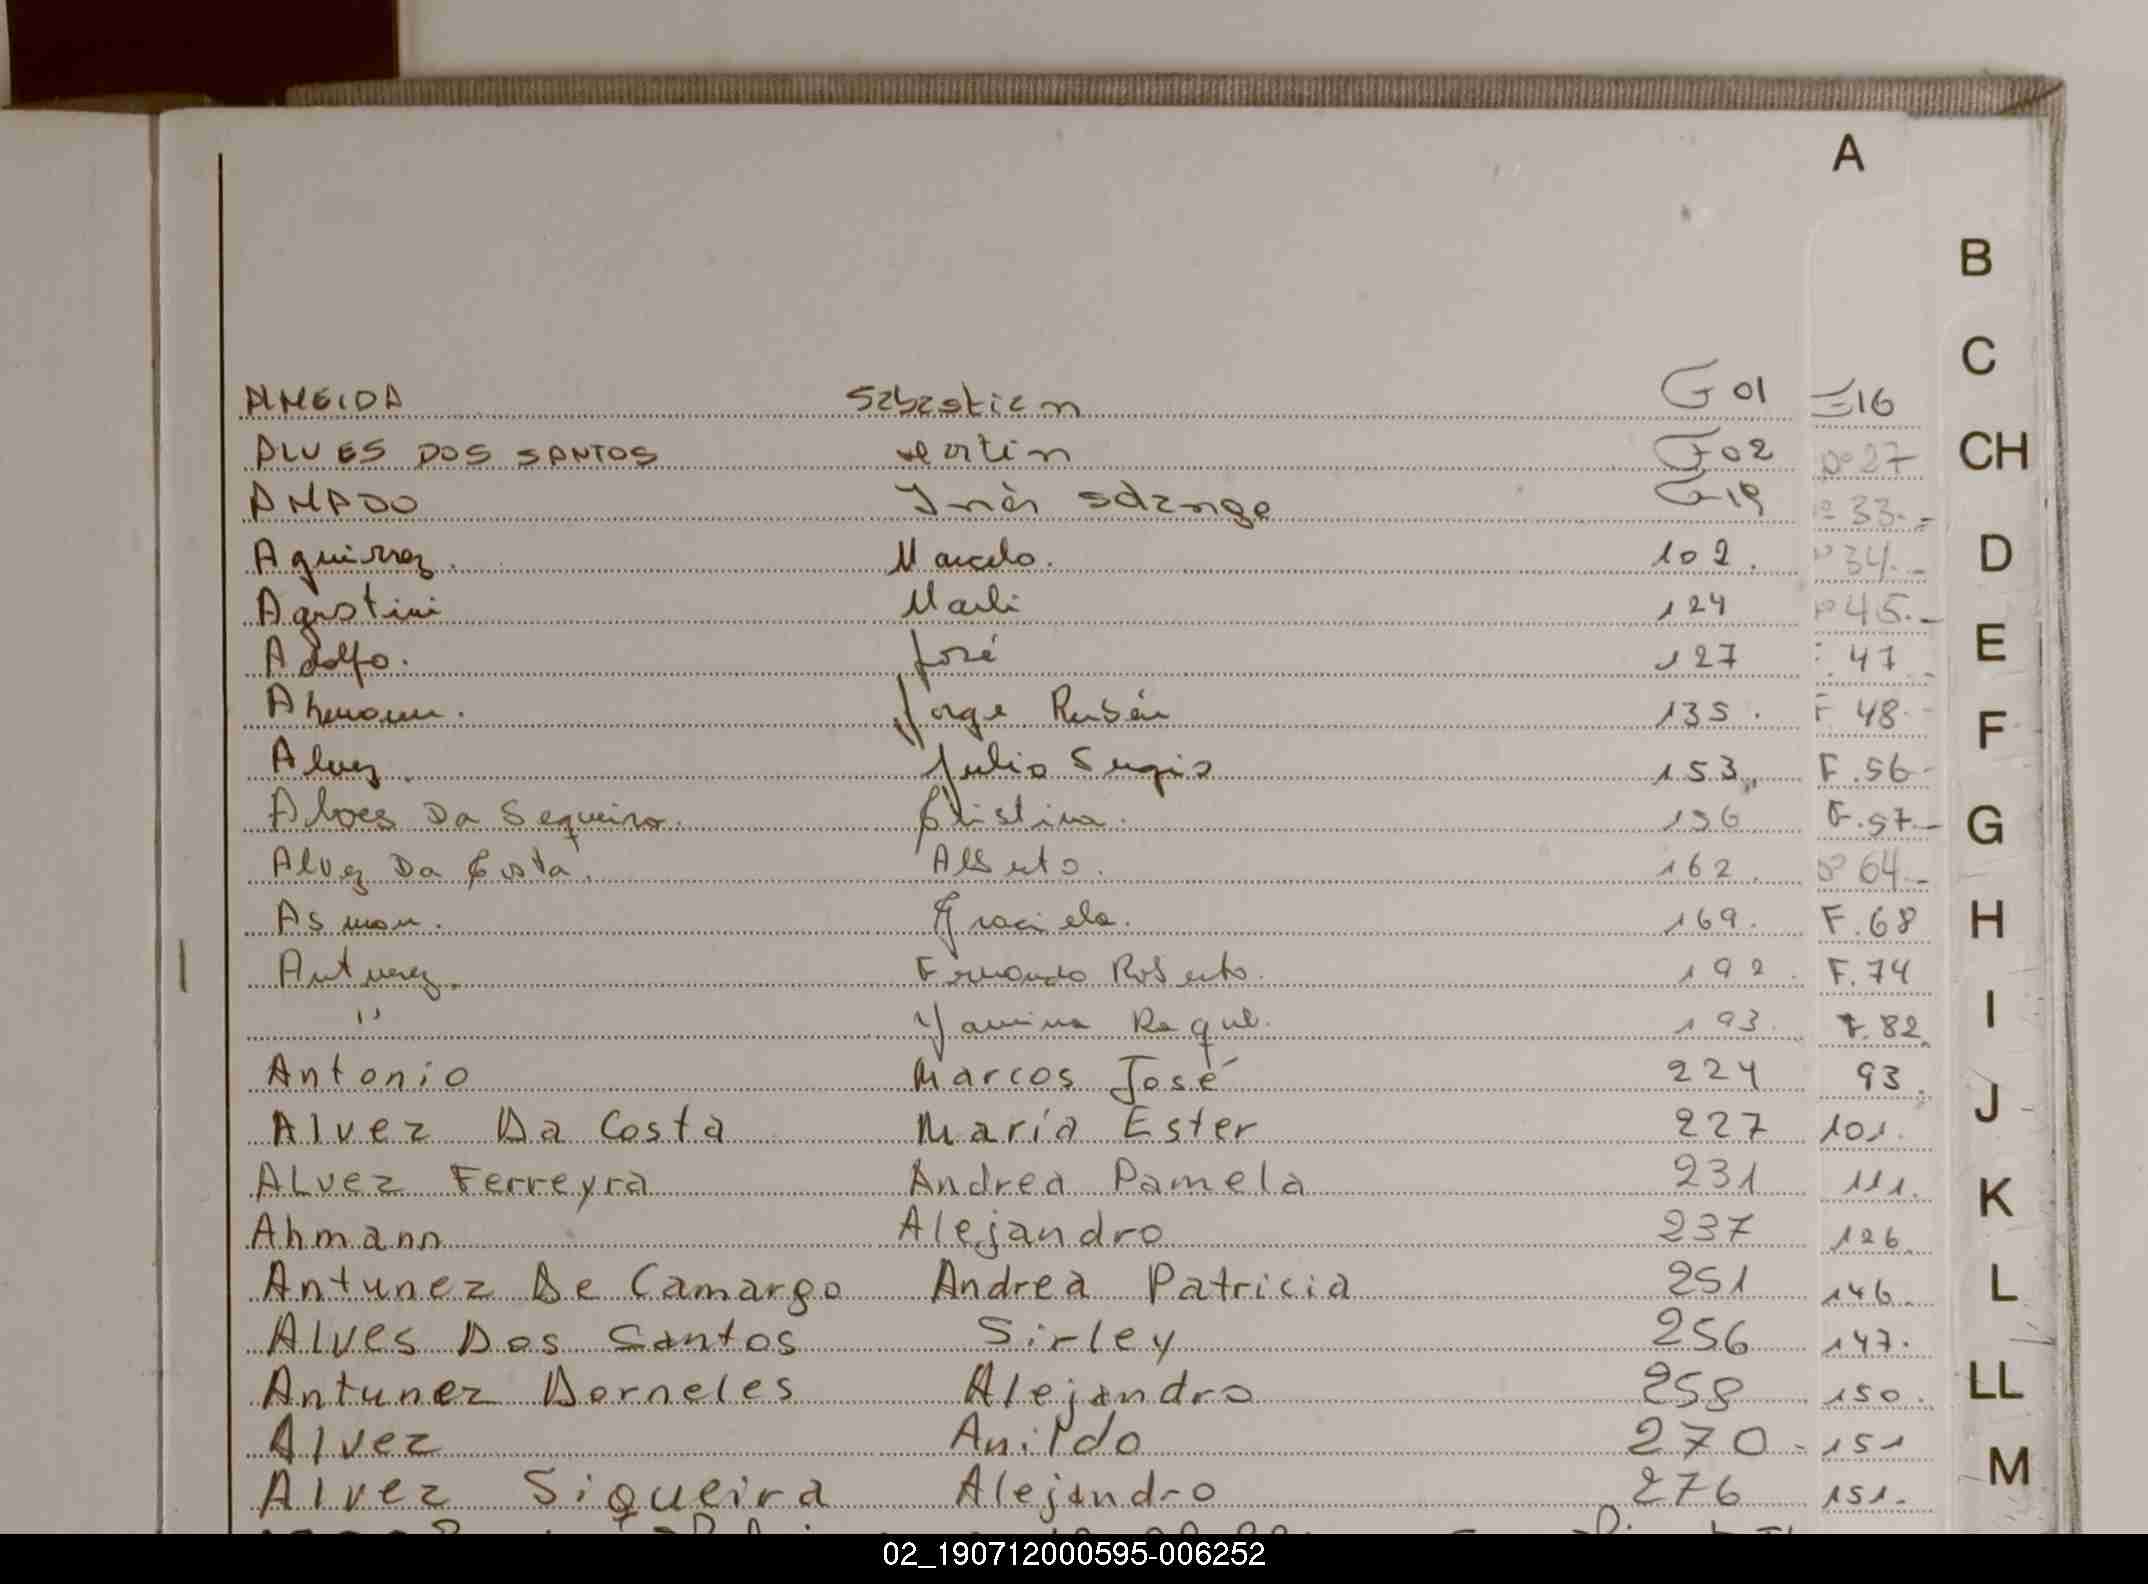 A
B
C
CH
D
E
F
G
H
I
J
K
L
LL
M
ALMEIDA Sebastian G 01
ALVES DOS SANTOS Martin F 02 Nº 27
AMADO Inés Solange G 19 33.-
Aguirrez. Marcelo. 102. Nº 34.-
Agostini Marli 124 Nº 45.-
Adolfo. José 127 47
Ahmann. Jorge Rubén 135. F 48.-
Alvez. Julio Sergio 153. F.56-
Alves Da Sequeira. Cristina. 156 F.57-
Alvez Da Costa. Alberto. 162. Nº 64.-
Asman. Graciela. 169. F.68
Antunez. Fernando Roberto. 192. F.74
" Yamina Raquel. 193. F.82.
Antonio Marcos José 224 93.
Alvez Da Costa María Ester 227 101.
ALvez Ferreyra Andrea Pamela 231 111.
Ahmann Alejandro 237 126.
Antunez De Camargo Andrea Patricia 251 146.
Alves Dos Santos Sirley 256 147.
Antunez Dorneles Alejandro 258 150.
Alvez Anildo 270- 151
Alvez Siqueira Alejandro 276 151.
02_190712000595-006252